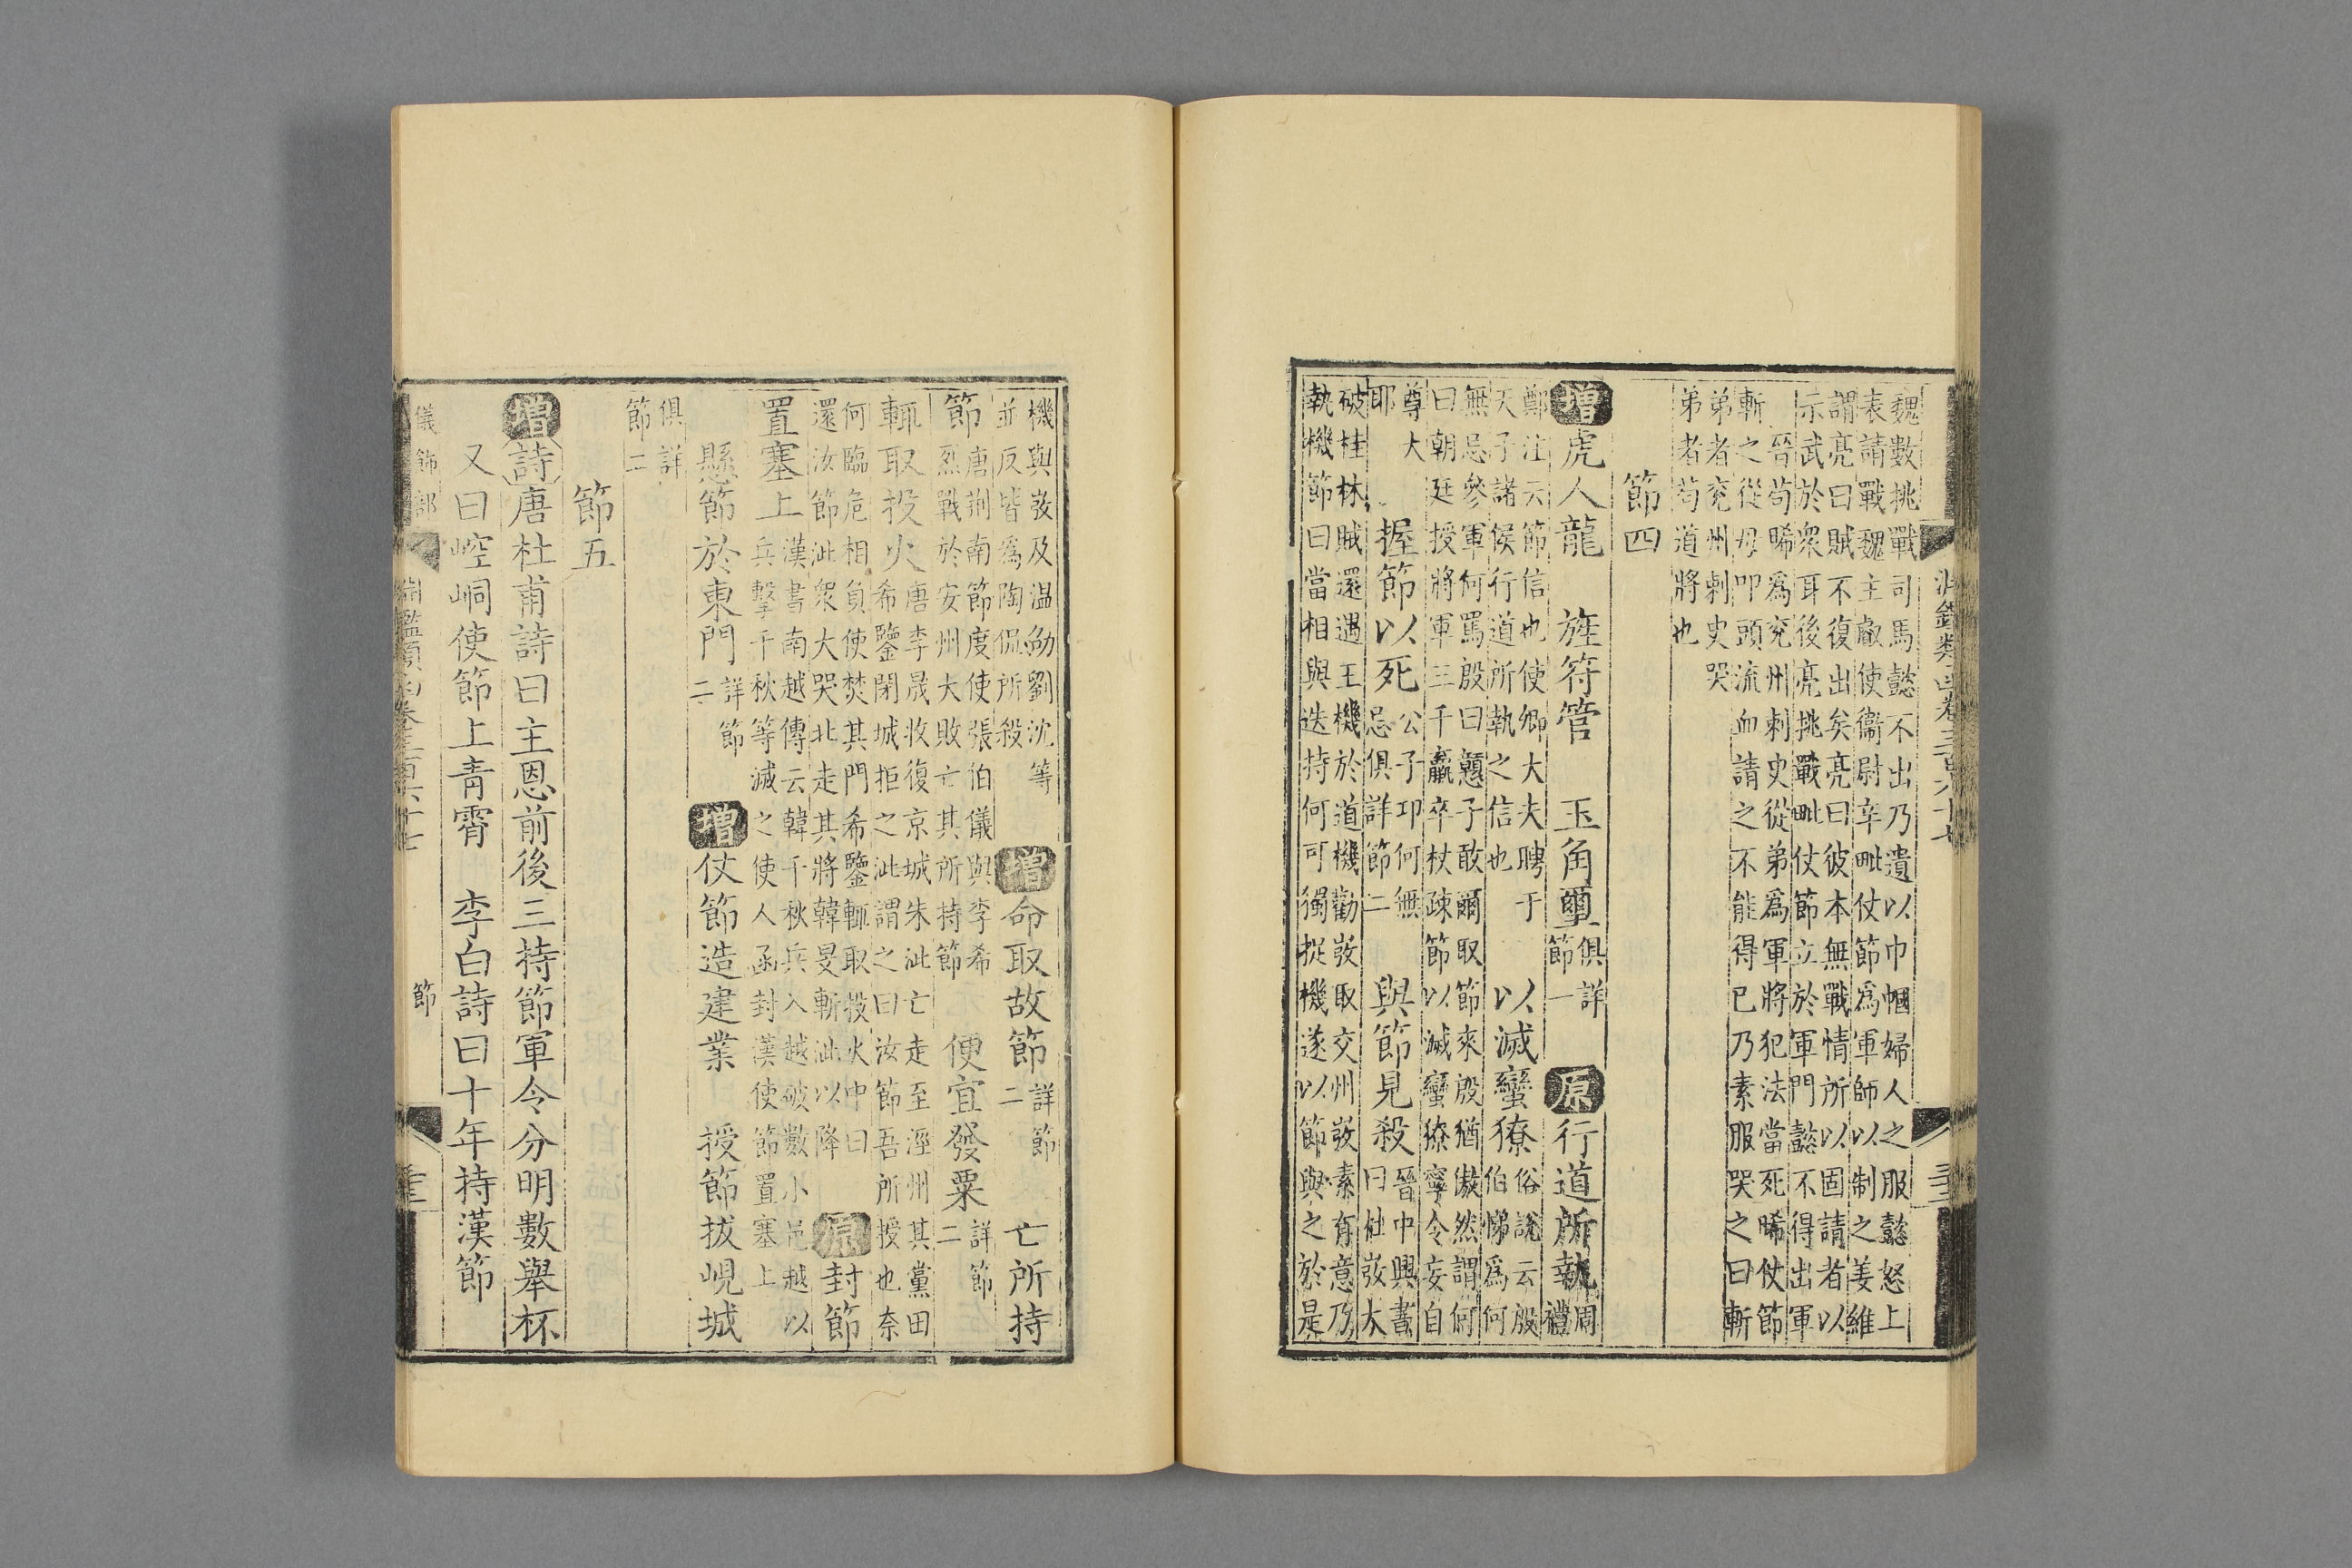 魏數挑戰司馬懿不出乃遺以巾幗婦人之服懿怒上
表請戰魏主叡使衞尉辛毗仗節爲軍師以制之姜維
謂亮曰賊不復出矣亮曰彼本無戰情所以固請者以
示武於衆耳後亮挑戰毗仗節立於軍門懿不得出軍
晉茍晞爲兖州刺史從弟爲軍將犯法當死晞仗節
斬之從母叩頭流血請之不能得已乃素服哭之曰斬
弟者兖州刺史哭
弟者茍道將也
節四
增虎人龍 旌符管 玉角璽俱詳節一 原行道所執周禮
鄭注云節信也使卿大夫聘于
天子諸侯行道所執之信也
以滅蠻獠俗說云殷伯悌爲何
無忌參軍何罵殷曰戇子敢爾取節來殷猶傲然謂何
曰朝廷授將軍三千羸卒杖疎節以滅蠻獠寧令妄自
尊大耶 握節以死公子卬何無忌俱詳節二 與節見殺晉中興書曰杜弢大
破桂林賊還遇王機於道機勸弢取交州弢素有意乃
執機節曰當相與迭持何可獨捉機遂以節與之於是
機與弢及温劭劉沈等
並反皆爲陶侃所殺
增命取故節詳節二 亡所持
節唐荆南節度使張伯儀與李希
烈戰於安州大敗亡其所持節
便宜發粟詳節二
輒取投火唐李晟收復京城朱泚亡走至涇州其黨田
希鑒閉城拒之泚謂之曰汝節吾所授也奈
何臨危相負使焚其門希鑒輒取投火中曰
還汝節泚衆大哭北走其將韓旻斬泚以降
原封節
置塞上漢書南越傳云韓千秋兵入越破數小邑越以
兵擊千秋等滅之使人函封漢使節置塞上
懸節於東門詳節二 增仗節造建業 授節拔峴城
俱詳節二
節五
增詩唐杜甫詩曰主恩前後三持節軍令分明數舉杯
又曰崆峒使節上青霄 李白詩曰十年持漢節
儀飾部
節